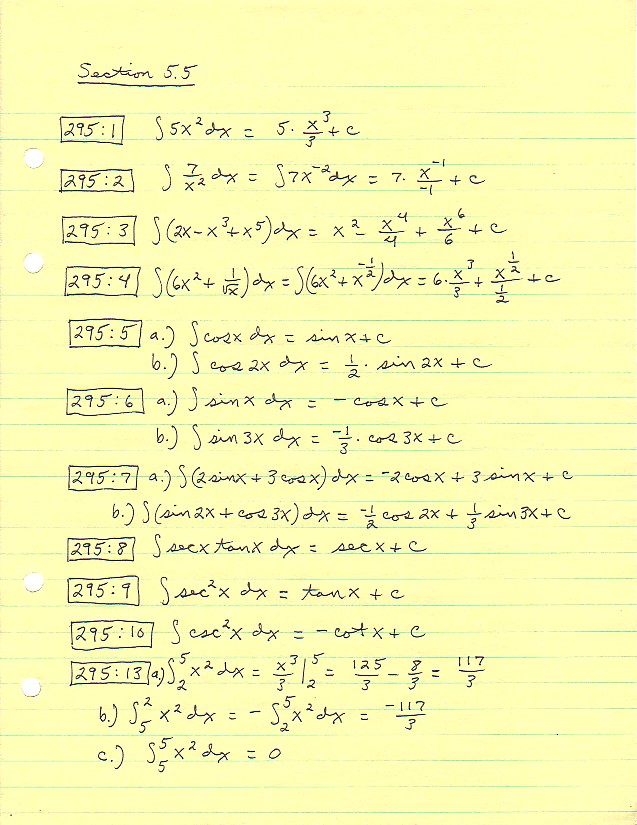 Section 5.5
295:1 ∫5x² dx = 5· x³/3 + c
295:2 ∫ 7/x² dx = ∫7x⁻² dx = 7· x⁻¹/-1 + c
295:3 ∫(2x-x³+x⁵)dx = x² - x⁴/4 + x⁶/6 + c
295:4 ∫(6x² + 1/√x)dx = ∫(6x² + x^(-1/2))dx = 6· x³/3 + x^(1/2)/(1/2) + c
295:5 a.) ∫cosx dx = sinx+c
b.) ∫ cos 2x dx = 1/2 · sin 2x + c
295:6 a.) ∫ sinx dx = - cosx + c
b.) ∫ sin 3x dx = -1/3 · cos 3x + c
295:7 a.) ∫(2sinx + 3cosx)dx = -2cosx + 3 sinx + c
b.) ∫(sin 2x + cos 3x)dx = -1/2 cos 2x + 1/3 sin 3x + c
295:8 ∫ secx tanx dx = secx + c
295:9 ∫ sec²x dx = tanx + c
295:10 ∫ csc²x dx = -cotx + c
295:13 a) ∫₂⁵ x² dx = x³/3 |₂⁵ = 125/3 - 8/3 = 117/3
b.) ∫₅² x² dx = - ∫₂⁵ x² dx = -117/3
c.) ∫₅⁵ x² dx = 0